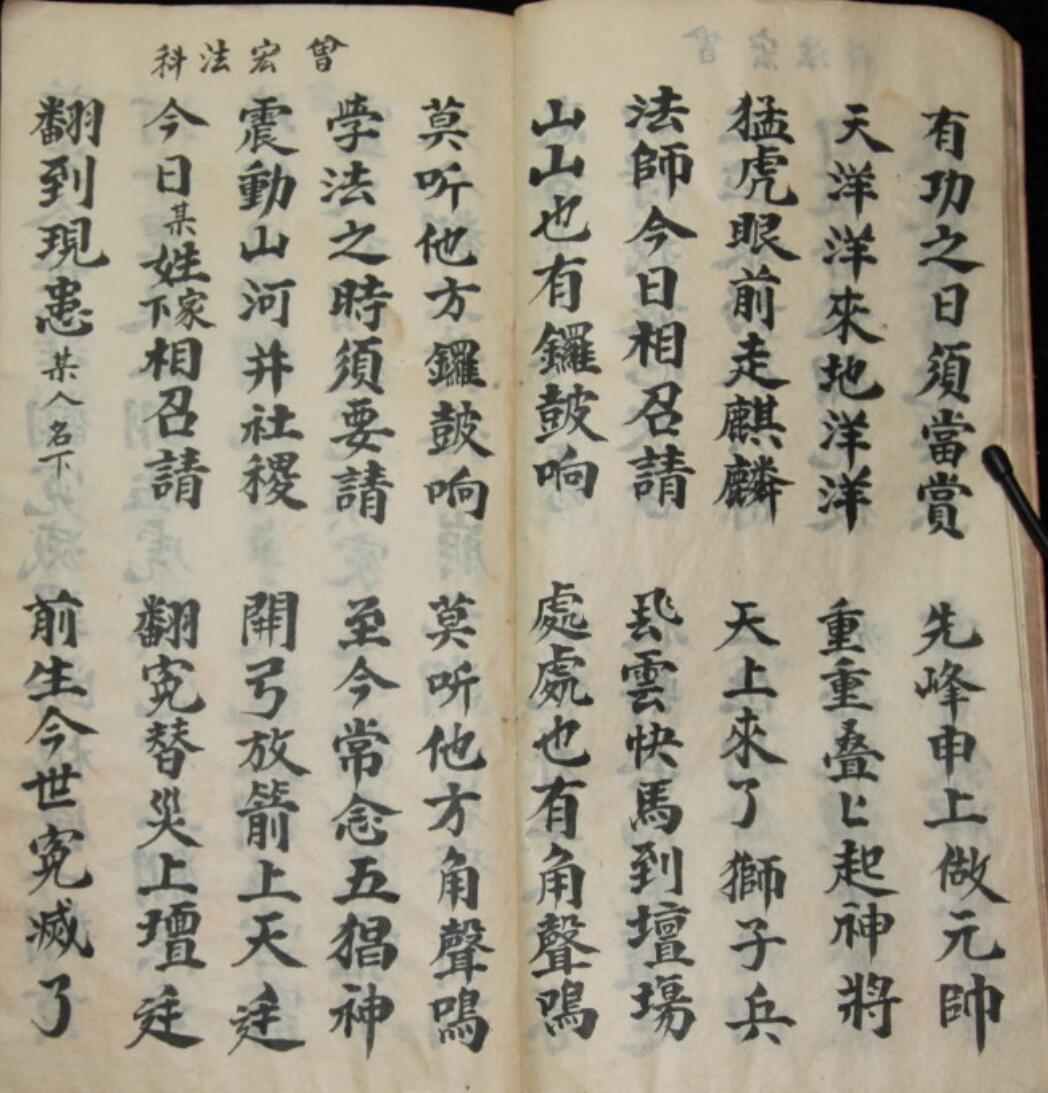 有功之日須當賞 先峰申上做元帥
天洋洋來地洋洋 重重叠匕起神將
猛虎眼前走麒麟 天上來了獅子兵
法師今日相召請 雲快馬到壇場
山山也有鑼鼓响 處處也有角聲鳴
曾宏法科
莫听他方鑼鼓响 莫听他方角聲鳴
學法之時須要請 至今常念五猖神
震動山河井社稷 開弓放箭上天廷
今日某姓家下相召請 翻冤替災上壇廷
翻到現患某人名下 前生今世冤滅了